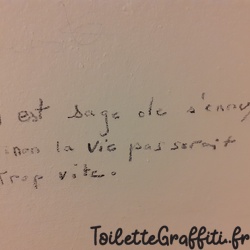 est sage de s'ennuy
inon la vie passerait
trop vite.
ToiletteGraffiti.fr